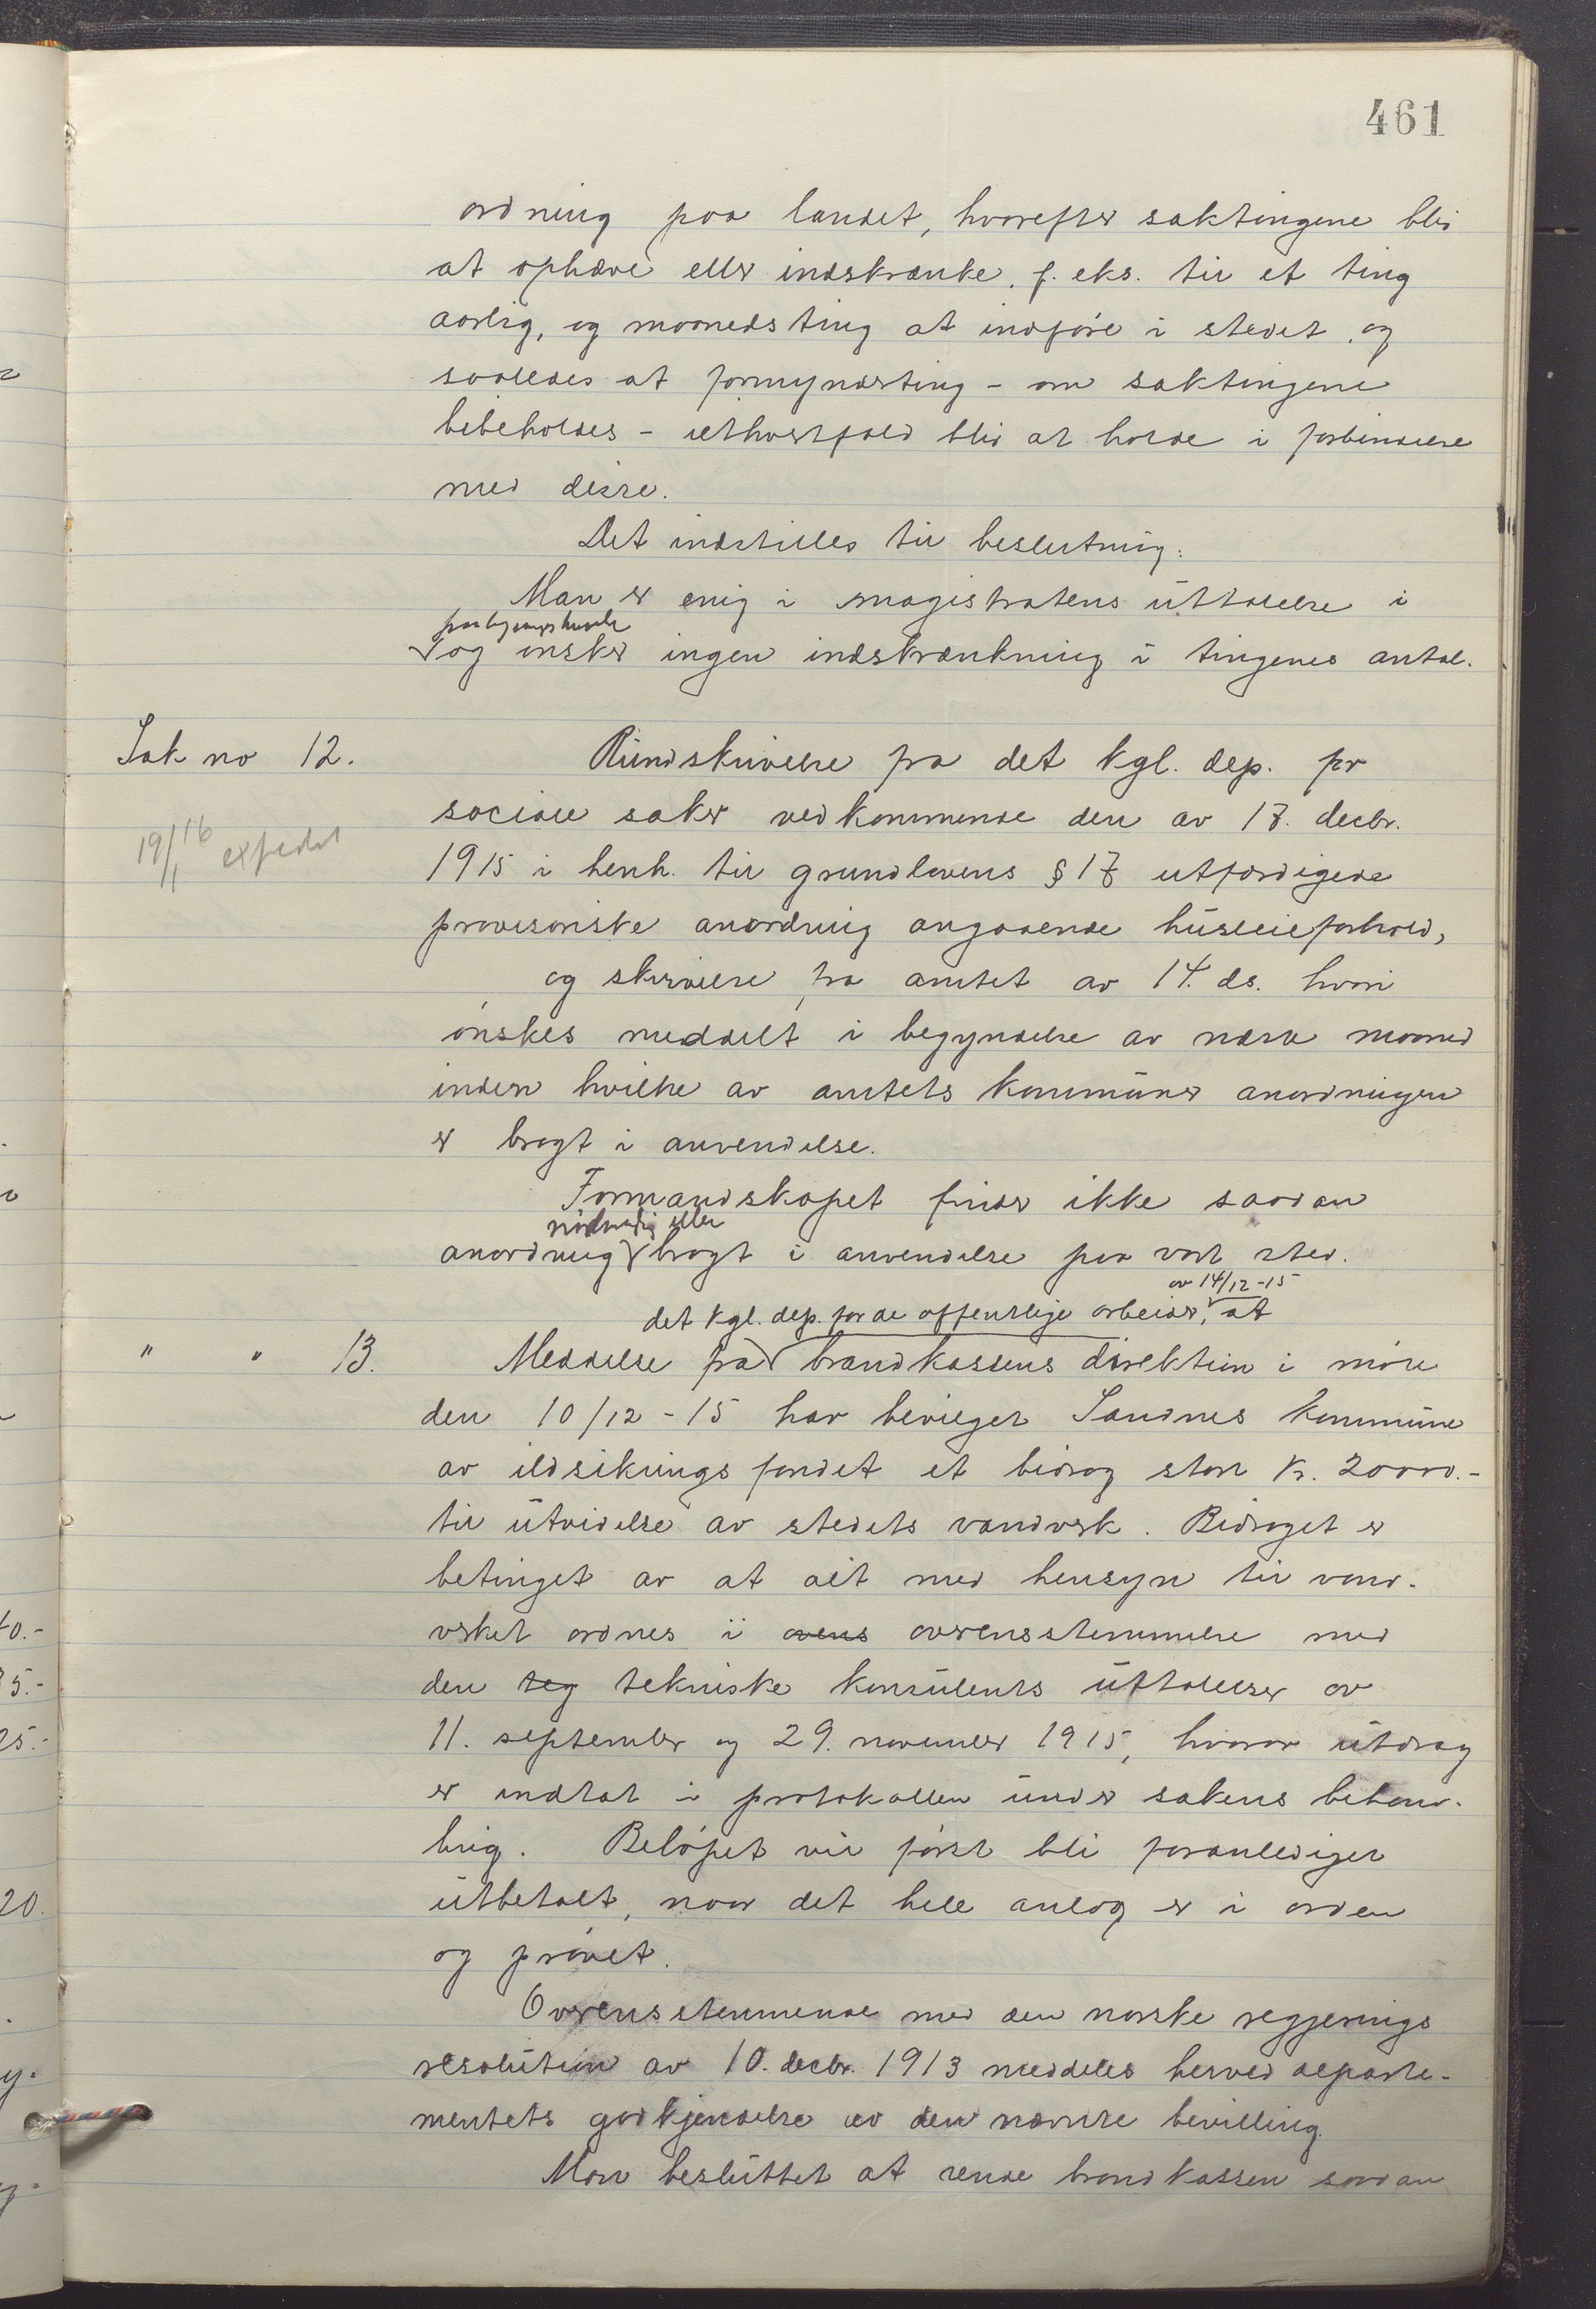 461
ordning paa landet, hvorefter saktingene blir
at ophæve eller indskrænke, f. eks. til et ting
aarlig, og maanedsting at indføre i stedet, og
saaledes at formynderting - om saktingene
bibeholdes - ialhvertfald blir at holde i forbindelse
med disse.
Det indstilles til beslutning:
Man er enig i magistratens uttalelse i
og ønsker ingen indskrænkning i tingenes antal.
Sak no 12.
Rundskrivelse fra det kgl. dep. for
sociale saker vedkommende den av 17. decbr.
19/1 16 expedert
1915 i henh. til grundlovens § 17 utfærdigede
provisoriske anordning angaaende husleieforhold,
og skrivelse fra amtet av 14. ds. hvori
ønskes meddelt i begyndelse av næste maaned
inden hvilke av amtets kommuner anordningen
er bragt i anvendelse.
Formandskapet finder ikke saadan
nødvendig eller
anordning bragt i anvendelse paa vort sted.
av 14/12-15
det kgl. dep. for de offentlige arbeider, at
" " 13.
Meddelse fra brandkassens direktion i møte
den 10/12-15 har bevilget Sandnes kommune
av ildsikringsfondet et bidrag stort kr. 20000.-
til utvidelse av stedets vandverk. Bidraget er
betinget av at alt med hensyn til vand-
verket ordnes i ovens overensstemmelse med
den teg tekniske konsulents uttalelser av
11. september og 29. november 1915, hvorav utdrag
er indtat i protokollen under sakens behand-
ling. Beløpet vil først bli foranlediget
utbetalt, naar det hele anlæg er i orden
og prøvet.
Overensstemmende med den norske regjerings
resolution av 10. decbr. 1913 meddeles herved departe-
mentets godkjendelse av den nævnte bevilling.
Man besluttet at sende brandkassen saadan